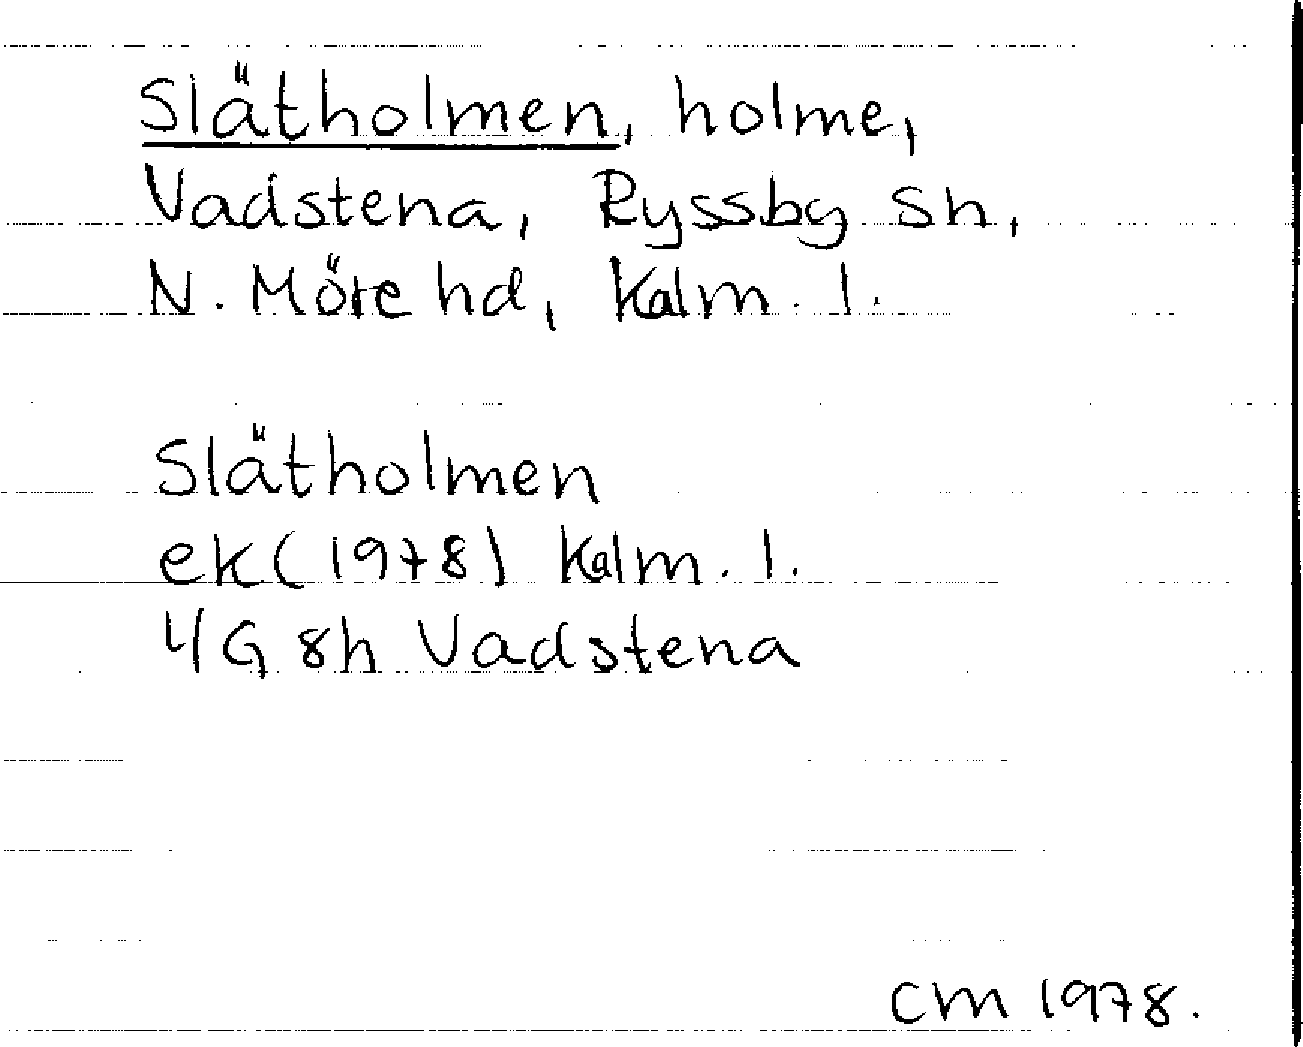 Slätholmen, holme,
Vadstena, Ryssby sn,
N. Möre hd, Kalm. l.
Slätholmen
ek (1978) Kalm. l.
4G 8h Vadstena
CM 1978.